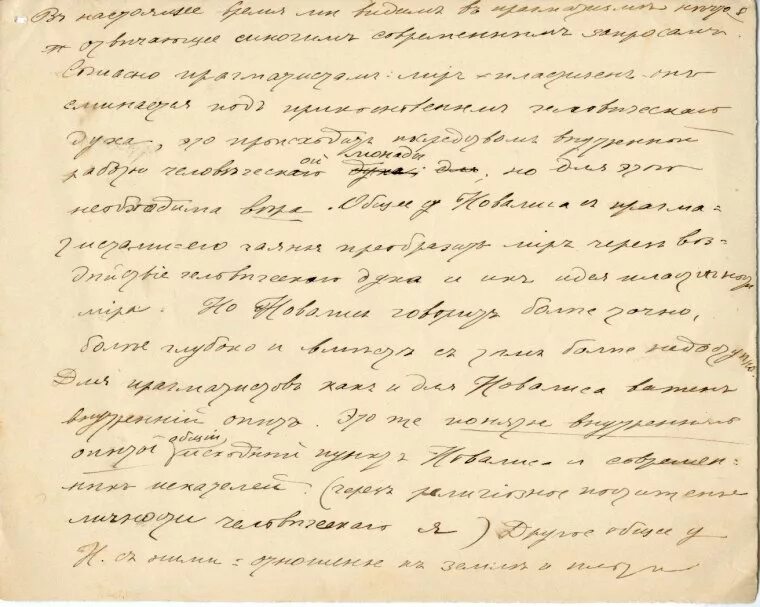 Въ настоящее время мы видимъ въ прагматизмѣ нѣчто
отвѣчающее многимъ современнымъ запросамъ.
Согласно прагматистамъ: міръ – пластиченъ онъ
сминается подъ прикосновеніемъ человѣческаго
духа, это происходитъ посредствомъ внутренней
работы человѣческой монады, но для этого
необходима вѣра. Общее у Новалиса съ прагма=
тистами – его чаянья преобразить міръ черезъ воз=
дѣйствіе человѣческаго духа и ихъ идея пластичности
міра. Но Новалисъ говоритъ болѣе точно,
болѣе глубоко и вмѣстѣ съ тѣмъ болѣе
Для прагматистовъ какъ и для Новалиса важенъ
внутренній опытъ. Это же внутренній
опытъ общій исходный пунктъ Новалиса и современ=
ныхъ искателей. (черезъ религіозное постиженье
личности человѣческаго я) Другое общее у
Н. съ ними = отношенье къ землѣ и плоти